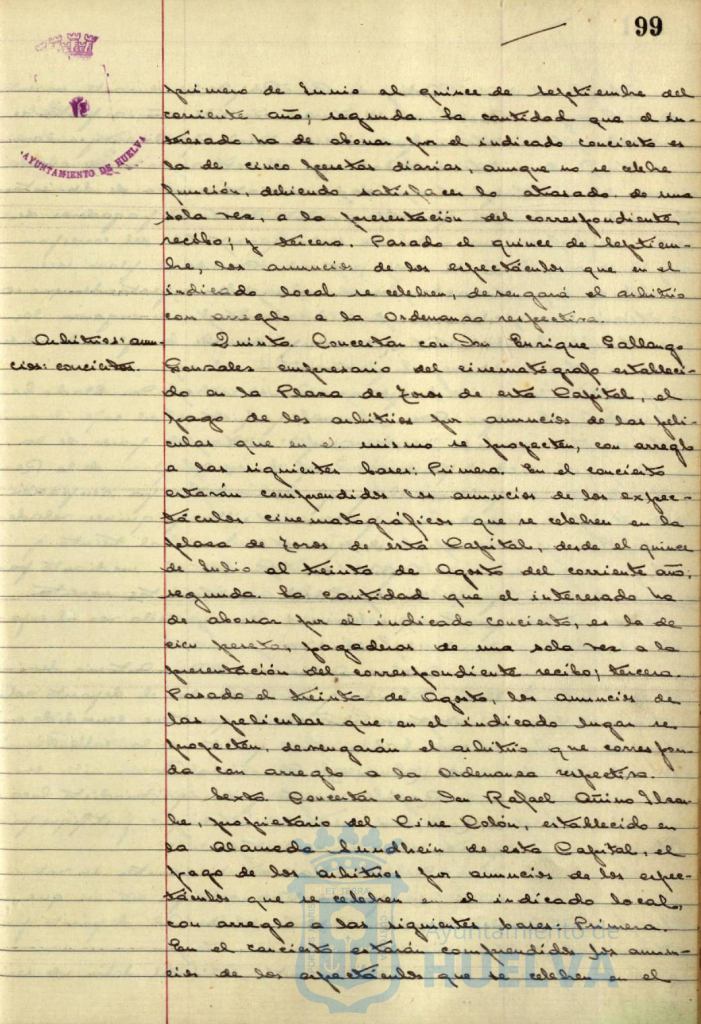 99
AYUNTAMIENTO DE HUELVA
primero de Junio al quince de Septiembre del
corriente año; segunda. La cantidad que el in-
teresado ha de abonar por el indicado concierto es
la de cinco pesetas diarias, aunque no se celebre
función, debiendo satisfacer lo atrasado de una
sola vez, a la presentación del correspondiente
recibo; y tercera. Pasado el quince de Septiem-
bre, los anuncios de los espectáculos que en el
indicado local se celebren, devengará el arbitrio
con arreglo a la Ordenanza respectiva.
Arbitrios: anun-
cios: conciertos.
Quinto. Concertar con Don Enrique
Gonzales empresario del cinematógrafo estableci-
do en la Plaza de Toros de esta Capital, el
pago de los arbitrios por anuncios de las pelí-
culas que en el mismo se proyecten, con arreglo
a las siguientes bases: Primera. En el concierto
estarán comprendidos los anuncios de los expec-
táculos cinematográficos que se celebren en la
plaza de Toros de esta Capital, desde el quince
de Julio al treinta de Agosto del corriente año;
segunda. La cantidad que el interesado ha
de abonar por el indicado concierto, es la de
cien peseta, pagaderas de una sola vez a la
presentación del correspondiente recibo; tercera.
Pasado el treinta de Agosto, los anuncios de
las películas que en el indicado lugar se
proyecten, devengarán el arbitrio que correspon-
da con arreglo a la Ordenanza respectiva.
Sexto. Concertar con Don Rafael
propietario del Cine Colón, establecido en
la Alameda Sundhein de esta Capital, el
pago de los arbitrios por anuncios de los espec-
táculos que se celebren en el indicado local,
con arreglo a las siguientes bases: Primera.
En el concierto estarán comprendidos los anun-
cios de los espectáculos que se celebren en el
Ayuntamiento de
HUELVA